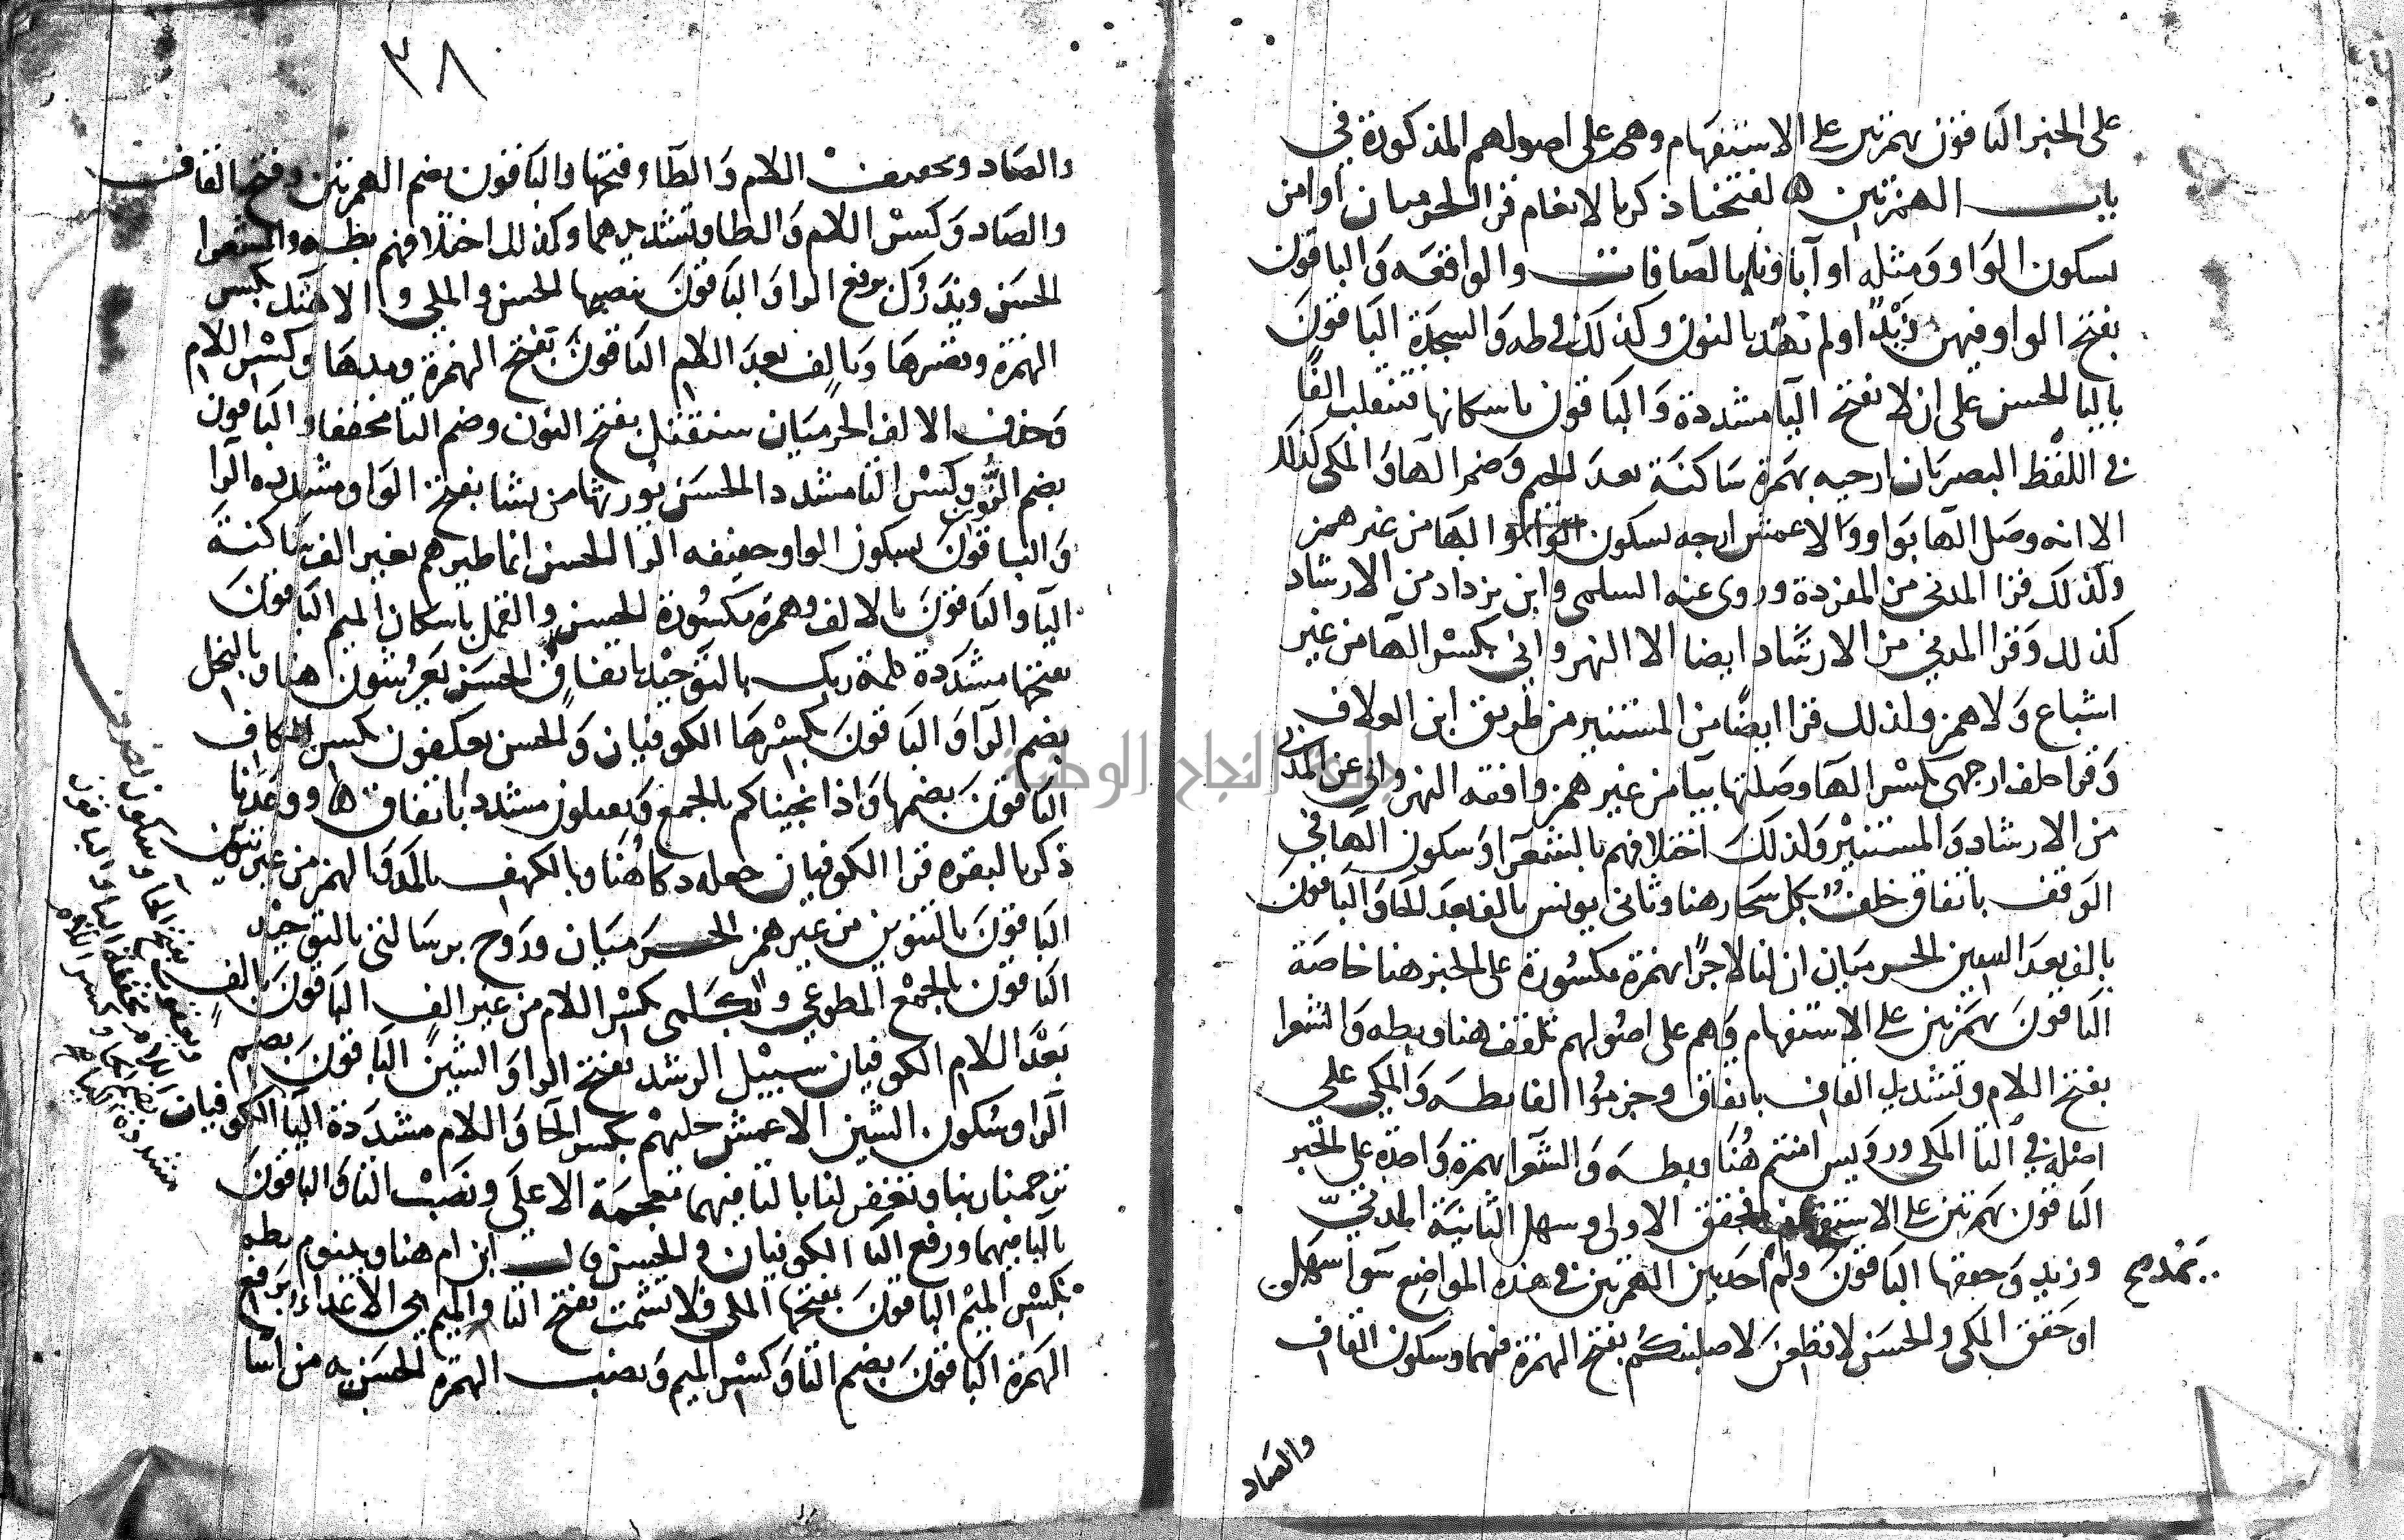 على الخبر الباقون بهمزتين على الاستفهام وهم على اصولهم المذكورة في
باب الهمزتين ه لفتحنا ذكر بالانعام قرا الحرميان او امن
بسكون الواو ومثله او آباؤنا بالصافات والواقعه والباقون
بفتح الواو فيهن زيد او لم نهد بالنون وكذلك في طه والسجدة الباقون
باليا الحسن على ان لا تفتح اليا مشددة والباقون باسكانها فتنقلب الفا
في اللفظ البصريان ارجيه بهمزة ساكنة بعد الجيم وضم الها والمكي كذلك
الا انه وصل الها بواو والاعمش ارجه بسكون الها من غير همز
وكذلك قرا المدني من المفردة وروى عنه السلمي وابن يزداد من الارشاد
كذلك وقرا المدني من الارشاد ايضا الا النهرواني بكسر الها من غير
اشباع ولا همز وكذلك قرا ايضا من المستنير من طريق ابن العلاف
وقرا خلف ارجهي بكسر الها وصلتها بيا من غير همز وافقه النهرواني عن المدني
من الارشاد والمستنير وكذلك اختلافهم بالشعرا وسكون الها في
الوقف باتفاق خلف بكل سحار هنا وثاني يونس بالف بعد الحا والباقون
بالف بعد السين الحرميان ان لنا لاجرا بهمزة مكسورة على الخبر هنا خاصة
الباقون بهمزتين على الاستفهام وهم على اصولهم تلقف هنا وبطه والشعرا
بفتح اللام وتشديد القاف باتفاق وجزموا الفا بطه والمكي على
اصله في التا المكي ورويس امنتم هنا وبطه والشعرا بهمزة واحدة على الخبر
الباقون بهمزتين على الاستفهام فحقق الاولى وسهل الثانية المدني
وزيد وحققها الباقون ولم احد بين الهمزتين في هذه المواضع سوا سهل
يمد صح
او حقق المكي والحسن لاقطعن لاصلبنكم بفتح الهمزة فيهما وسكون القاف
والصاد
٣٨
والصاد وتخفيف اللام والطا وفتحها والباقون بضم الهمزتين وفتح القاف
والصاد وكسر اللام والطا وتشديدهما وكذلك اختلافهم بطه والشعرا
الحسن ويذرك برفع الرا والباقون بنصبها الحسن والمكي والاهتك بكسر
الهمزة وقصرها وبالف بعد اللام الباقون بفتح الهمزة ومدها وكسر اللام
وحذف الالف الحرميان سنقتل بفتح النون وضم التا مخففا والباقون
بضم النون وكسر التا مشددا الحسن يورثها من يشا بفتح الواو ومشددة الرا
والباقون بسكون الواو وخفيفه الرا الحسن انما طيرهم بغير الف ساكنة
اليا والباقون بالالف وهمزة مكسورة الحسن والقمل باسكان الميم الباقون
بفتحها مشددة كلمة ربك بالتوحيد باتفاق الحسن يعرشون هنا وبالنحل
بضم الرا والباقون بكسرها الكوفيان والحسن يعكفون بكسر الكاف
الباقون بضمها واذ انجيناكم بالجمع ويقتلون مشددا باتفاق ه ووعدنا
ذكر بالبقره قرا الكوفيان جعله دكا هنا وبالكهف بالمد والهمز من غير تنوين
الباقون بالتنوين من غير همز الحرميان وروح برسالتي بالتوحيد
الباقون بالجمع المطوعي وبكلمي بكسر اللام من غير الف الباقون بالف
بعد اللام الكوفيان سبيل الرشد بفتح الرا والشين الباقون بضم
الرا وسكون الشين الاعمش حليهم بكسر الحا واللام مشددة اليا الكوفيان
ترحمنا ربنا وتغفر لنا بالتا فيهما معجمة الاعلى ونصب البا والباقون
باليا فيهما ورفع البا الكوفيان والحسن قال ابن ام هنا ويبنوم بطه
بكسر الميم الباقون بفتحها المكي فلا تشمت بفتح التا والميم بي الاعداء برفع
الهمزة الباقون بضم التا وكسر الميم ونصب الهمزة الحسن به من اسا
ويعقوب بفتح الحا وسكون
اللام مخففة اليا والباقون
بضم الحا وكسر اللام
مشددة اليا صح
جامعة النجاح الوطنية